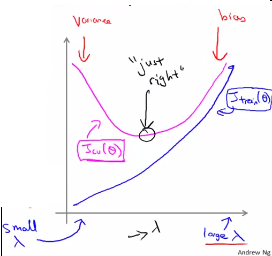 Variance
bias
"just
right"
J_cv(θ)
J_train(θ)
small
λ
→ λ
large λ
Andrew Ng